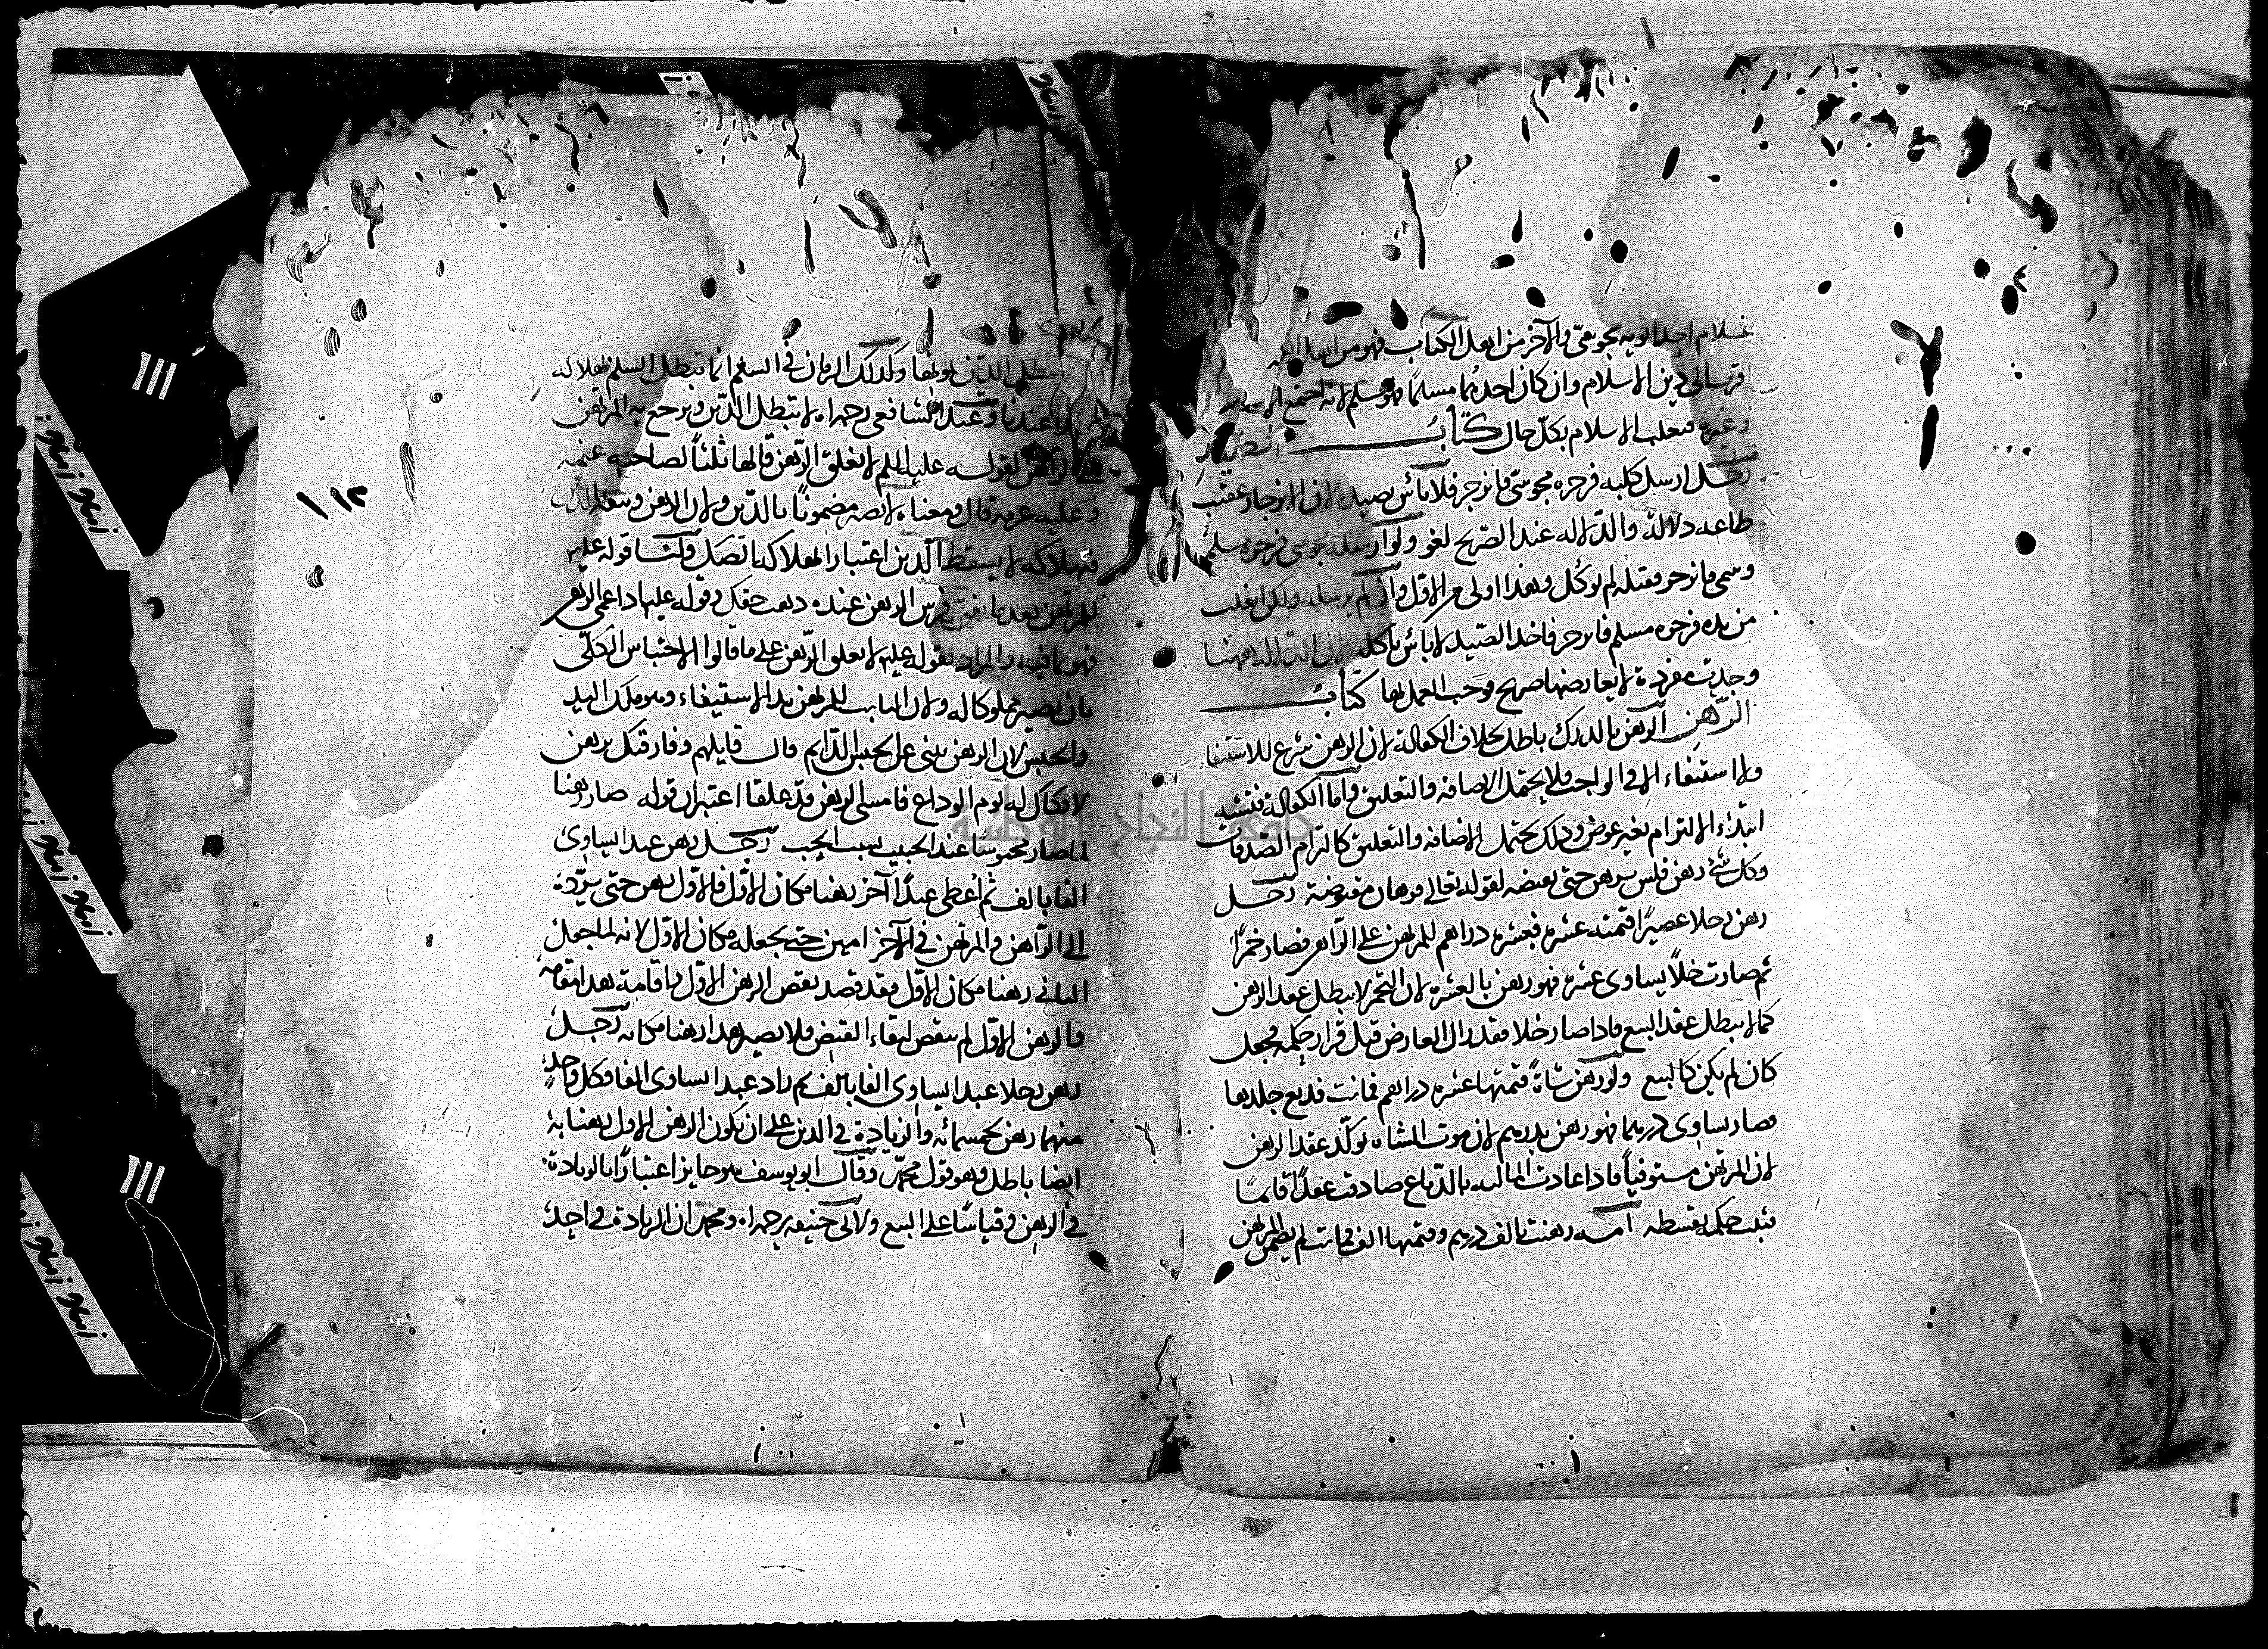 غلام احد ابويه مجوسي والآخر من اهل الكتاب فهو من اهل
اقربها الى دين الاسلام وان كان احدهما مسلما فهو مسلم لانه اجتمع الاسلام
وغيره فيغلب الاسلام بكل حال كتاب
رجل ارسل كلبه فزجره مجوسي فانزجر فلا بأس بصيده لان الانزجار عقيب
طاعه دلالة والدلاله عند الصريح لغو ولو ارسله مجوسي فزجره مسلم
وسمى فانزجر فقتله لم يوكل وهذا اولى من الاول وان لم يرسله ولكن انفلت
من يده فزجره مسلم فانزجر فاخذ الصيد لا بأس باكله لان الدلاله ههنا
وجدت مفردة لا يعارضها صريح وجب العمل بها كتاب
الرهن الرهن بالدرك باطل بخلاف الكفالة لان الرهن شرع للاستيفا
ولا استيفاء الا في الواجب فلا يحتمل الاضافه والتعليق واما الكفالة فتشبه
ابتداء الالتزام بغير عوض وذلك يحتمل الاضافه والتعليق كالتزام الصدقات
وكل شئ رهن فليس برهن حتى يقبضه لقوله تعالى فرهان مقبوضة رجل
رهن رجلا عصيرا قيمته عشرة بعشرة دراهم للمرتهن على الراهن فصار خمرا
ثم صارت خلا يساوى عشرة فهو رهن بالعشرة لان التخمر لا يبطل عقد الرهن
كما لا يبطل عقد البيع فاذا صار خلا فقد زال العارض قبل قرار حكمه فجعل
كان لم يكن كالبيع ولو رهن شاة قيمتها عشرة دراهم فماتت فدبغ جلدها
فصار يساوى درهما فهو رهن بدرهم لان موت الشاه يوكد عقد الرهن
لان المرتهن مستوفيا فاذا عادت الماليه بالدباغ صادفت عقدا قائما
فثبت حكمه بقسطه امه رهنت بالف درهم وقيمتها الف فماتت لم يضمن المرتهن
يبطل الدين ايضا وكذلك الرهان في السلم انما تبطل السلم بهلاكه
هذا عندنا وعند الشافعي رحمه الله لا يبطل الدين ويرجع به المرتهن
على الراهن لقوله عليه السلم لا يغلق الرهن قالها ثلثا لصاحبه غنمه
وعليه غرمه قال ومعناه لا يصير مضمونا بالدين ولان الرهن وثيقة بالدين
فبهلاكه لا يسقط الدين اعتبارا بهلاك الصك ولنا قوله عليه
للمرتهن بعد ما نفق فرس الرهن عنده ذهب حقك وقوله عليه اذا عمى الرهن
فهو بما فيه والمراد بقوله عليه لا يغلق الرهن على ما قالوا الاحتباس الكلى
بان يصير مملوكا له ولان الثابت للمرتهن يد الاستيفاء وهو ملك اليد
والحبس لان الرهن يبنى عن الحبس الدايم قال قايلهم وفارقتك برهن
لا فكاك له يوم الوداع فامسى الرهن قد غلقا اعتبر ان قوله صار رهنا
لما صار محبوسا عند الحبيب بسبب الحب رجل رهن عبدا يساوى
الفا بالف ثم أعطى عبدا آخر رهنا مكان الاول فالاول رهن حتى يرده
الى الراهن والمرتهن في الآخر امين حتى يجعله مكان الاول لانه لما جعل
الثانى رهنا مكان الاول فقد قصد نقض الرهن الاول باقامة هذا مقامه
والرهن الاول لم ينتقض لبقاء القبض فلا يصير هذا رهنا مكانه رجل
رهن رجلا عبدا يساوى الفا بالف ثم زاد عبدا يساوى الفا وكل واحد
منهما رهن بخمسمائه والزيادة في الدين على ان يكون الرهن الاول رهنا به
ايضا باطل وهو قول محمد وقال ابو يوسف هو جايز اعتبارا بالزيادة
في الرهن وقياسا على البيع ولابى حنيفه رحمه الله ومحمد ان الزيادة في احد
١١٢
جامعة النجاح الوطنية